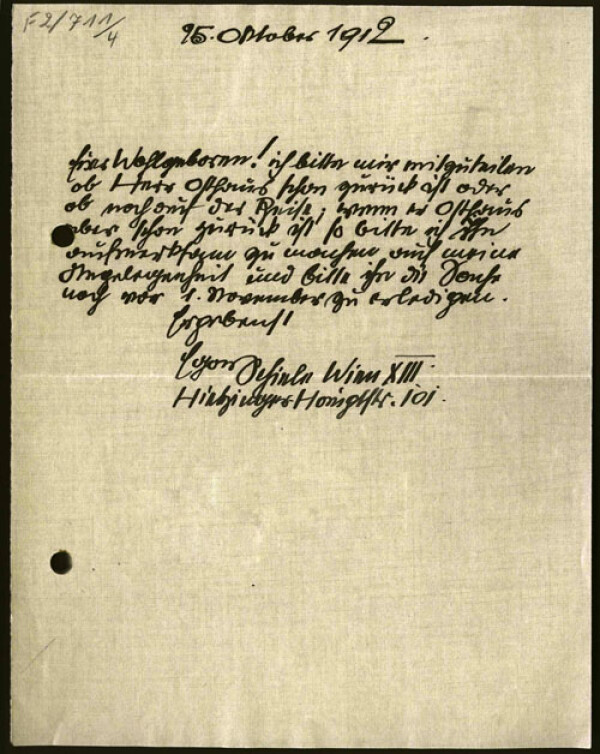 F2/711/4
25. Oktober 1912.
Euer Wohlgeboren! ich bitte mir mitzuteilen
ob Herr Osthaus schon zurück ist oder
ob noch auf der Reise; wenn er Osthaus
aber schon zurück ist, so bitte ich ihn
aufmerksam zu machen auf meine
Angelegenheit und bitte ihn die Sache
noch vor 1. November zu erledigen.
Ergebenst
Egon Schiele Wien XIII.
Hietzinger Hauptstr. 101.